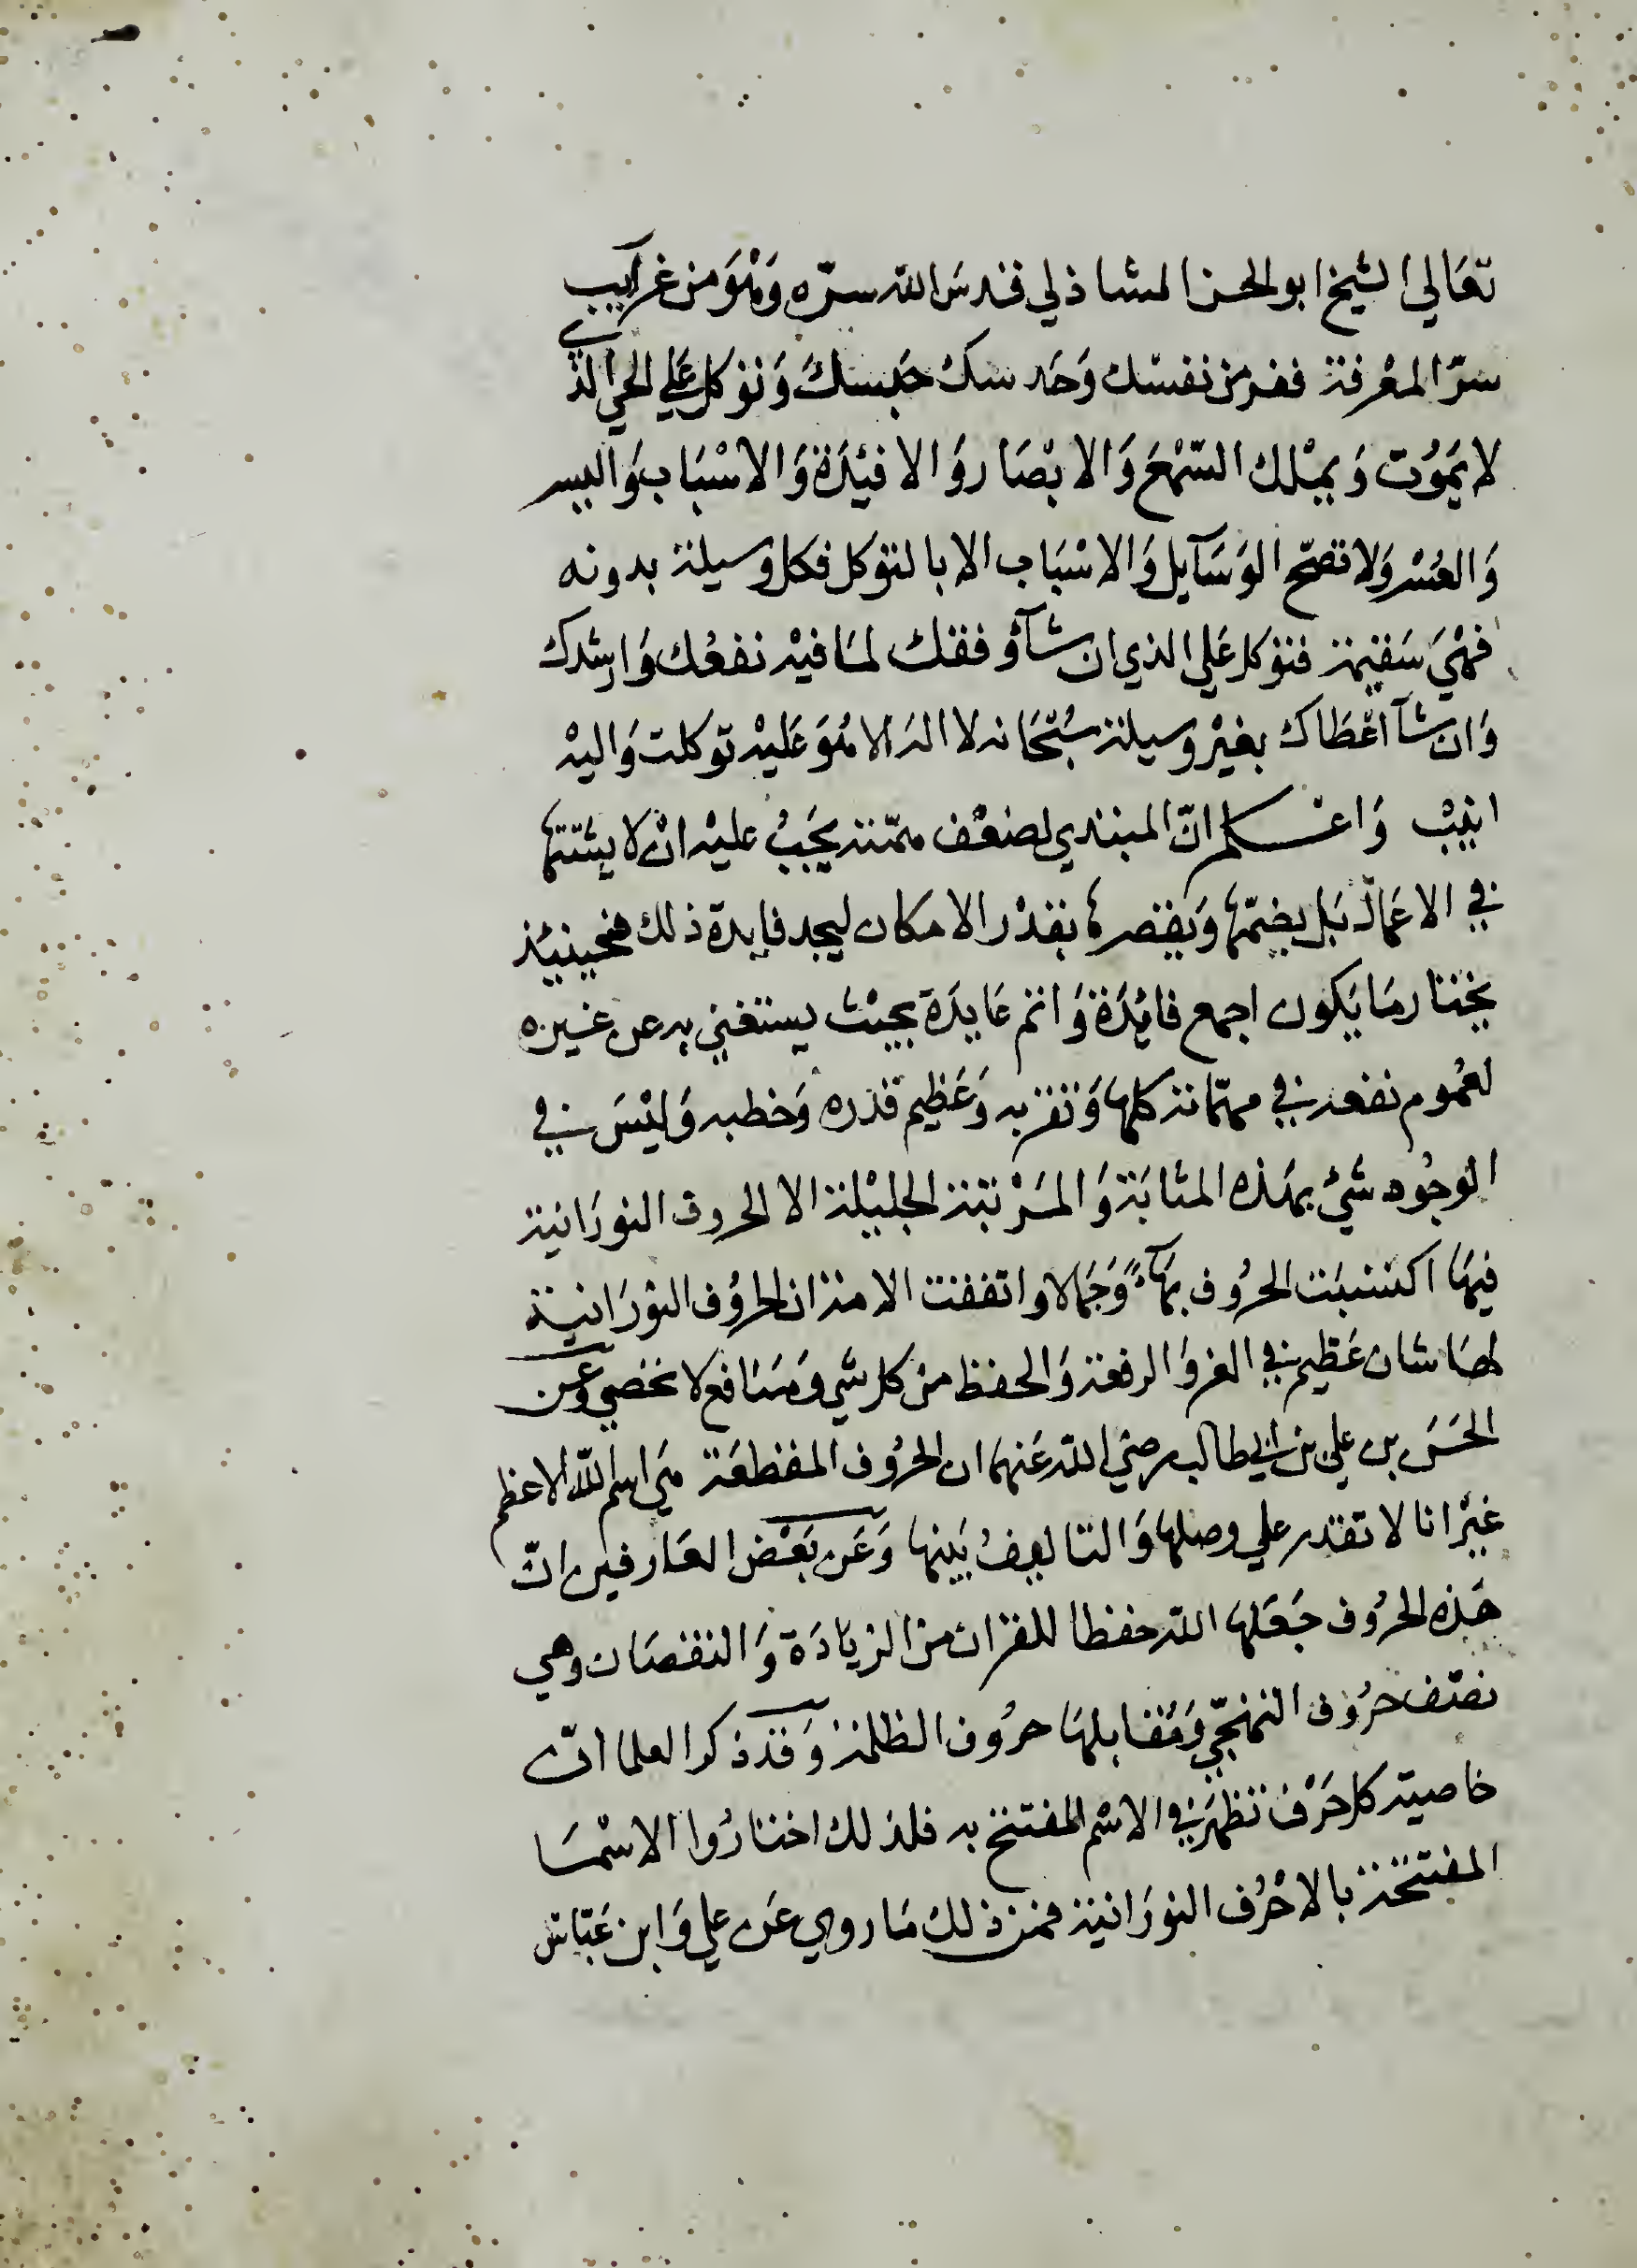 تعَالي الشيخ ابو الحسن الشاذلي قدسَ الله سرّه وَهْوَ من غرآيب
سرّ المعْرفة ففر من نفسك وَحَد سك حَبسكَ وَتوَكل عَلي الحي الذي
لا يَموُت وَيمْلك السّمْعَ وَالابْصَار وَالافئِدَة وَالاسْبَاب وَاليسر
وَالعُسْر وَلا تصّح الوَسَآيل وَالاسْبَاب الا بالتوَكل فكل وَسيلة بدونه
فهْيَ سَقيمة فتوَكل عَلي الذي ان شآ وَفقك لمَا فيْه نفعُك وَارشدك
وَان شآ اعْطَاك بغيْر وسيلة سُبْحَانه لا اله الا هُوَ عَليْه توكلت وَاليْه
انيْبْ وَاعْلم انّ المبتدي لضعْف همّته يجَبُ عليْه انْ لا يشتّتها
في الاعمال بَل يضمّها وَيقصرها بقدْر الامكان ليجد فايدة ذلك فحينيئذ
يختار مَا يَكون اجمع فائِدَة وَاتم عَايدَة بحيْث يستغني به عن غيره
لعمُوم نفعه في مهمّاته كلها وَتقربه وَعَظيم قدره وَخطبه وَليْسَ في
الوجُود شَيْ بهَذه المثابَة وَالمرْتبَة الجليْلة الا الحروف النورَانية
فبهَا اكتسَبَت الحرُوف بهَآءً وَجَمالا واتفقت الامة ان الحرُوف النوْرَانية
لهَا شان عَظيم في العز وَالرفعة وَالحفظ منْ كل شَي وَمَنافع لا تحصي وَعن
الحَسَن بن علي بن ابي طالب رضيَ الله عَنهما ان الحرُوف المقطعَة هيَ اسم الله الاعظم
غيْر انا لا تقدر علي وصلها وَالتاليفُ بَينها وَعَن بَعْض العَارفين انّ
هَذه الحرُوف جَعَلها الله حفظا للقران من الزيادَة وَالنقصَان وهي
نصْف حرُوف التهَجّي وَمُقابلهَا حرُوف الظلمة وَقدْ ذكر العلما انّ
خاصيّة كل حَرْف تظهَر في الاسْم المفتتح به فلذلك اختارُوا الاسْمَا
المفتتحة بالاحْرُف النورَانية فمن ذلك مَا روي عَن علي وَابن عَبّاس